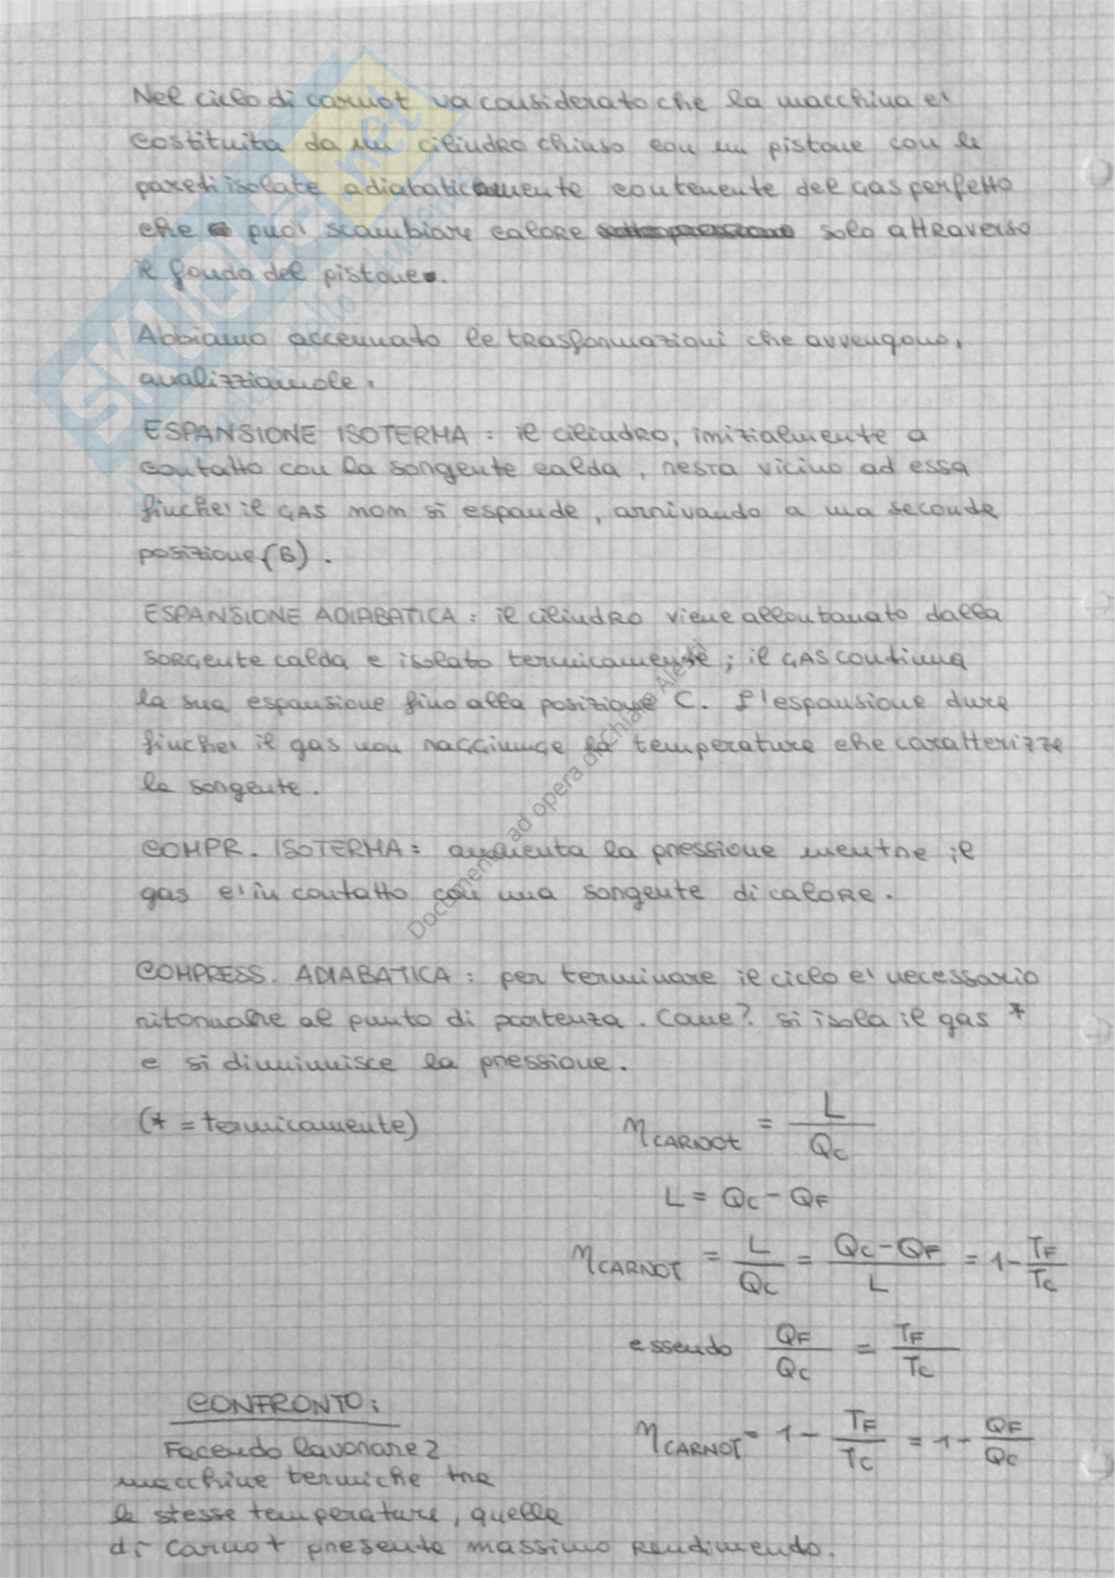 Nel ciclo di carnot va considerato che la macchina e'
costituita da un cilindro chiuso con un pistone con le
pareti isolate adiabaticamente contenente del GAS perfetto
che puo' scambiare calore solo attraverso
il fondo del pistone.
Abbiamo accennato le trasformazioni che avvengono,
analizziamole.
ESPANSIONE ISOTERMA : il cilindro, inizialmente a
contatto con la sorgente calda, resta vicino ad essa
finche' il GAS non si espande, arrivando a una seconda
posizione (B).
ESPANSIONE ADIABATICA : il cilindro viene allontanato dalla
sorgente calda e isolato termicamente; il GAS continua
la sua espansione fino alla posizione C. L'espansione dura
finche' il gas non raggiunge la temperatura che caratterizza
la sorgente.
COMPR. ISOTERMA : aumenta la pressione mentre il
gas e' in contatto con una sorgente di calore.
COMPRESS. ADIABATICA : per terminare il ciclo e' necessario
ritornare al punto di partenza. Come? si isola il gas *
e si diminuisce la pressione.
(* = termicamente)
η CARNOT = L / QC
L = QC - QF
η CARNOT = L / QC = QC - QF / L = 1 - TF / TC
essendo QF / QC = TF / TC
η CARNOT = 1 - TF / TC = 1 - QF / QC
CONFRONTO :
Facendo lavorare 2
macchine termiche tra
le stesse temperature, quella
di carnot presenta massimo rendimendo.
SKUOLA.net
Documento ad opera di Chiara Ales